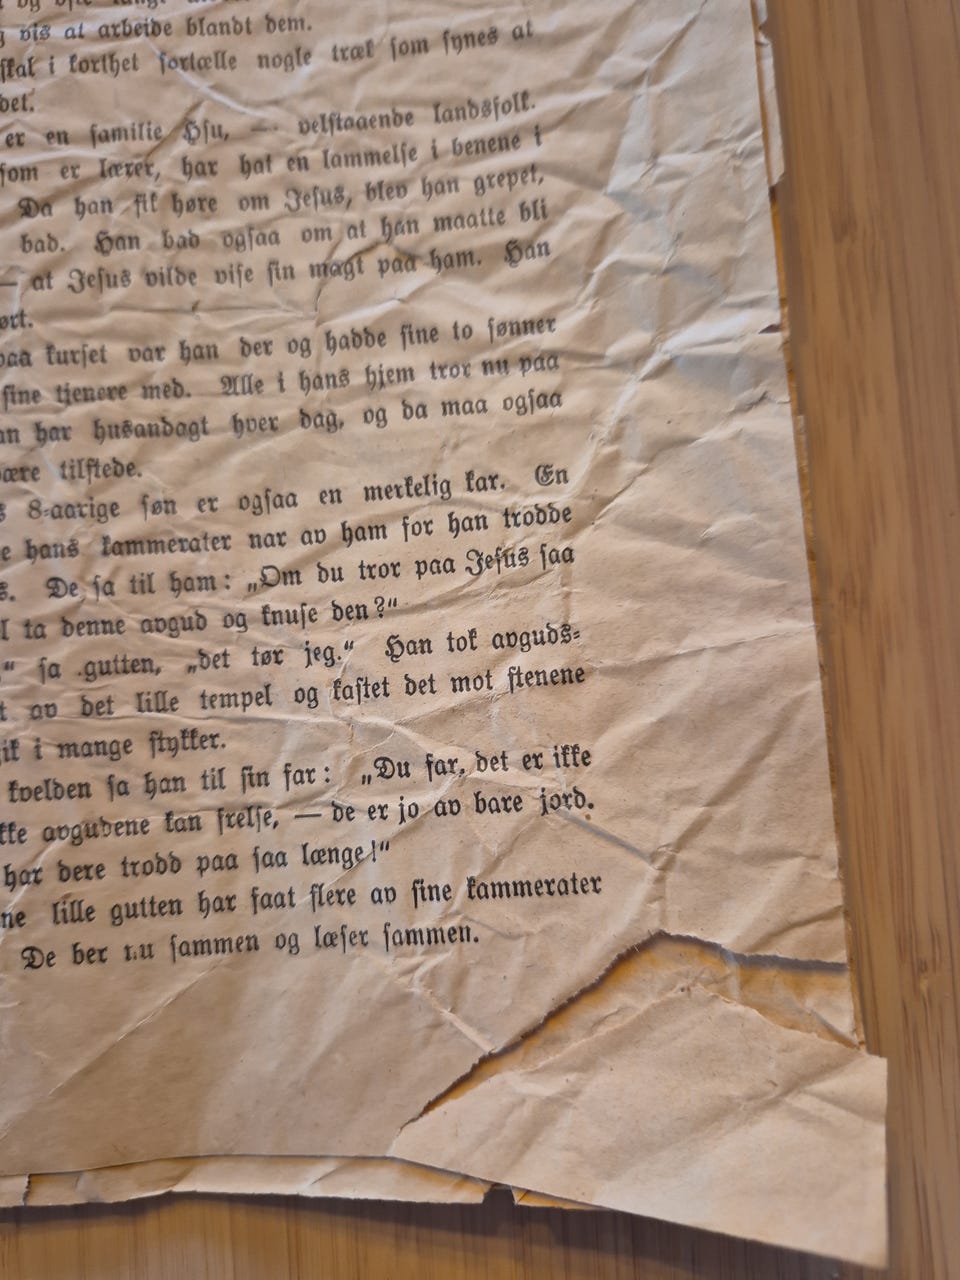 vis at arbeide blandt dem.
skal i korthet fortælle nogle træk som synes at
det.
er en familie Hsu, — velstaaende landsfolk.
som er lærer, har hat en lammelse i benene i
Da han fik høre om Jesus, blev han grepet,
bad. Han bad ogsaa om at han maatte bli
— at Jesus vilde vise sin magt paa ham. Han
ørt.
paa kurset var han der og hadde sine to sønner
sine tjenere med. Alle i hans hjem tror nu paa
an har husandagt hver dag, og da maa ogsaa
ære tilstede.
s 8-aarige søn er ogsaa en merkelig kar. En
e hans kammerater nar av ham for han trodde
s. De sa til ham: „Om du tror paa Jesus saa
l ta denne avgud og knuse den?“
“ sa gutten, „det tør jeg.“ Han tok avguds-
t av det lille tempel og kastet det mot stenene
ik i mange stykker.
kvelden sa han til sin far: „Du far, det er ikke
kke avgudene kan frelse, — de er jo av bare jord.
har dere trodd paa saa længe!“
ne lille gutten har faat flere av sine kammerater
De ber nu sammen og læser sammen.